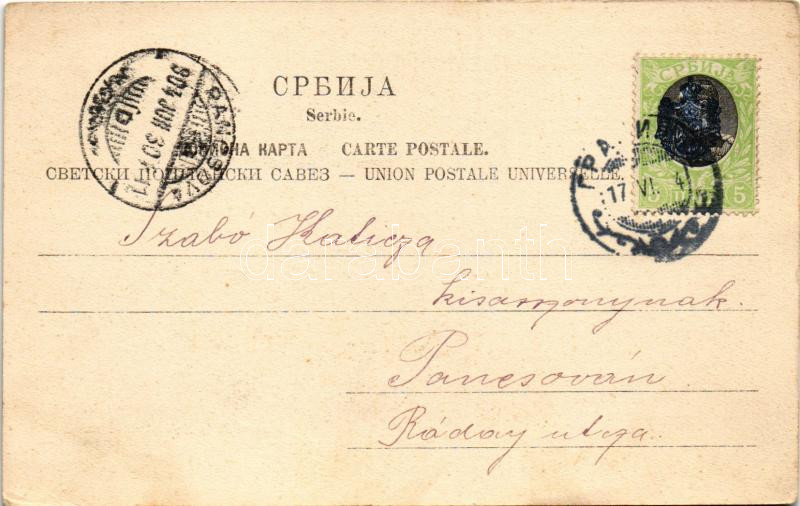 СРБИЈА
Serbie.
КАРТА CARTE POSTALE.
СВЕТСКИ ПОШТАНСКИ САВЕЗ — UNION POSTALE UNIVERSELLE.
Szabó Katicza
kisasszonynak.
Pancsován.
Ráday utcza.
СРБИЈА
5 5
PANCSOVA
904 JUN 30
17 VI 4
darabanth